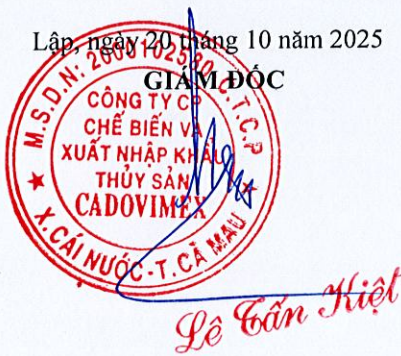 Lập, ngày 20 tháng 10 năm 2025
GIÁM ĐỐC
CÔNG TY CP
CHẾ BIẾN VÀ
XUẤT NHẬP KHẨU
THỦY SẢN
CADOVIMEX
X. CÁI NƯỚC - T. CÀ MAU
Lê Tấn Kiệt